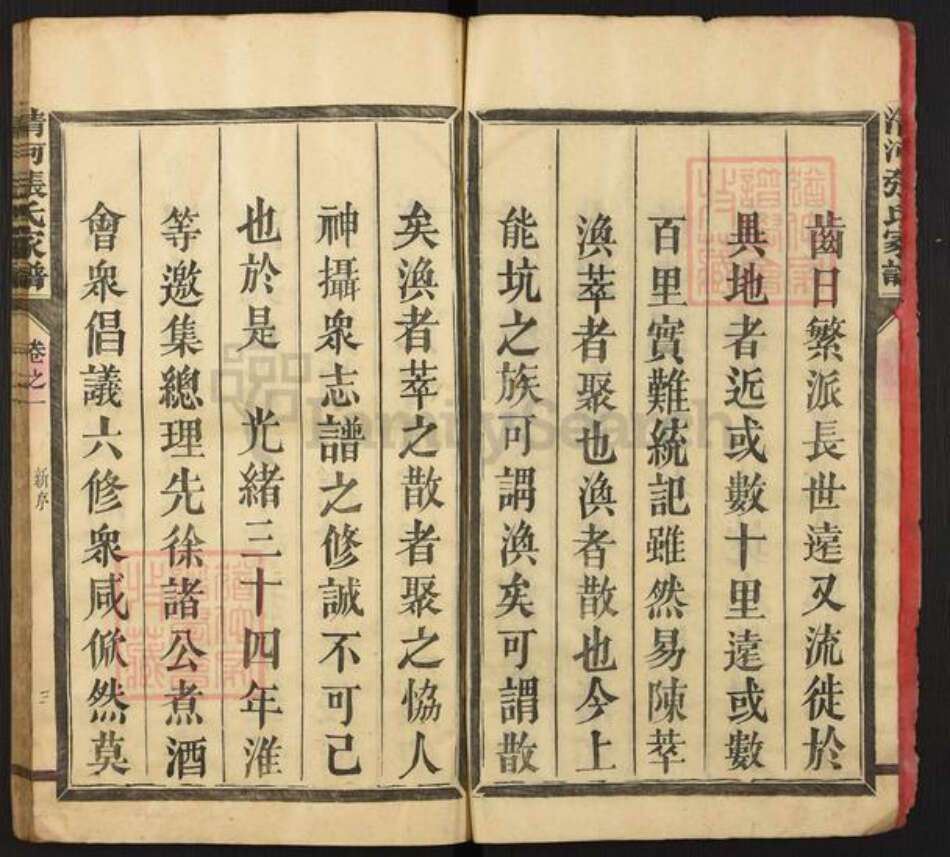 清河張氏家譜
齒日繁派長世遠又流徙於
異地者近或數十里遠或數
百里實難統記雖然易陳萃
渙萃者聚也渙者散也今上
能坑之族可謂渙矣可謂散
矣渙者萃之散者聚之恊人
神攝衆志譜之修誠不可已
也於是 光緒三十四年淮
等邀集總理先徐諸公煮酒
會衆倡議六修衆咸僉然莫
清河張氏家譜 卷之一 新序 三
FamilySearch